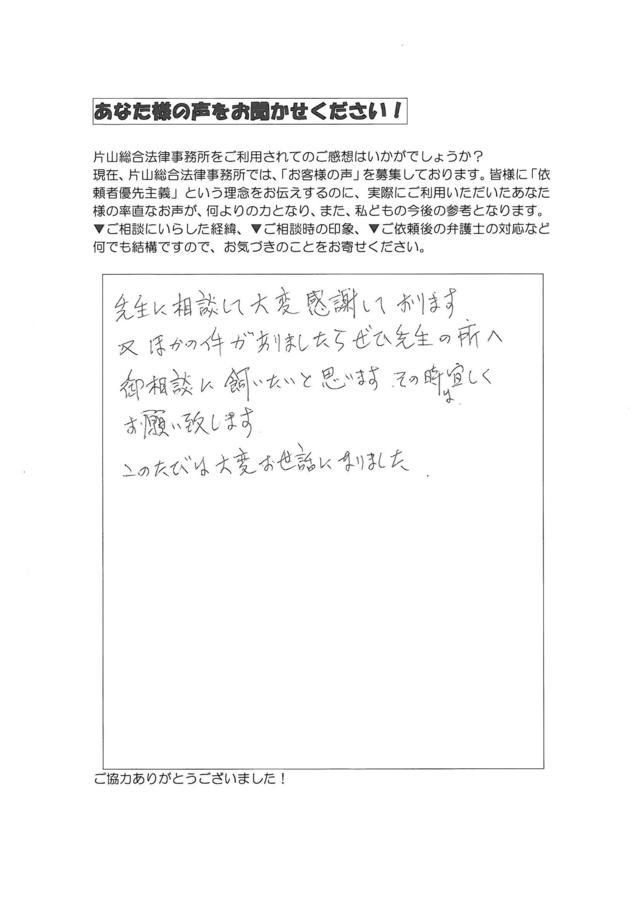 あなた様の声をお聞かせください!
片山総合法律事務所をご利用されてのご感想はいかがでしょうか?
現在、片山総合法律事務所では、「お客様の声」を募集しております。皆様に「依
頼者優先主義」という理念をお伝えするのに、実際にご利用いただいたあなた
様の率直なお声が、何よりの力となり、また、私どもの今後の参考となります。
▼ご相談にいらした経緯、▼ご相談時の印象、▼ご依頼後の弁護士の対応など
何でも結構ですので、お気づきのことをお寄せください。
先生に相談して大変感謝しております。
又ほかの件がありましたらぜひ先生の所へ
御相談に飼いたいと思います その時は宜しく
お願い致します
このたびは大変お世話になりました。
ご協力ありがとうございました!